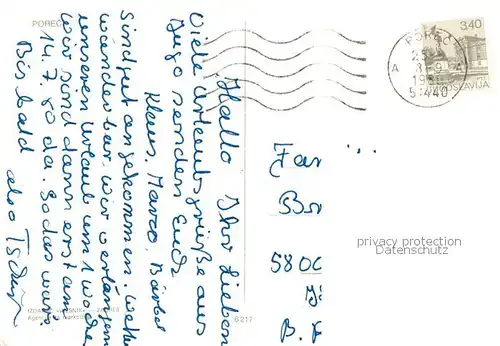 POREČ
Hallo Ihr Lieben
Viele Urlaubsgrüße aus
Jugo senden Euch
Klaus, Marco, Bärbel
Sind gut angekommen. Wetter
wunderbar. Wir verlängern
unseren Urlaub um 1 Woche
Wir sind dann erst am
14.7.80 da. So das wars
Bis bald
also Tschüß
6217
POREČ
52440
3.40
JUGOSLAVIJA
Fam
Br
5800
B.
privacy protection
AnsichtskartenVersand.com